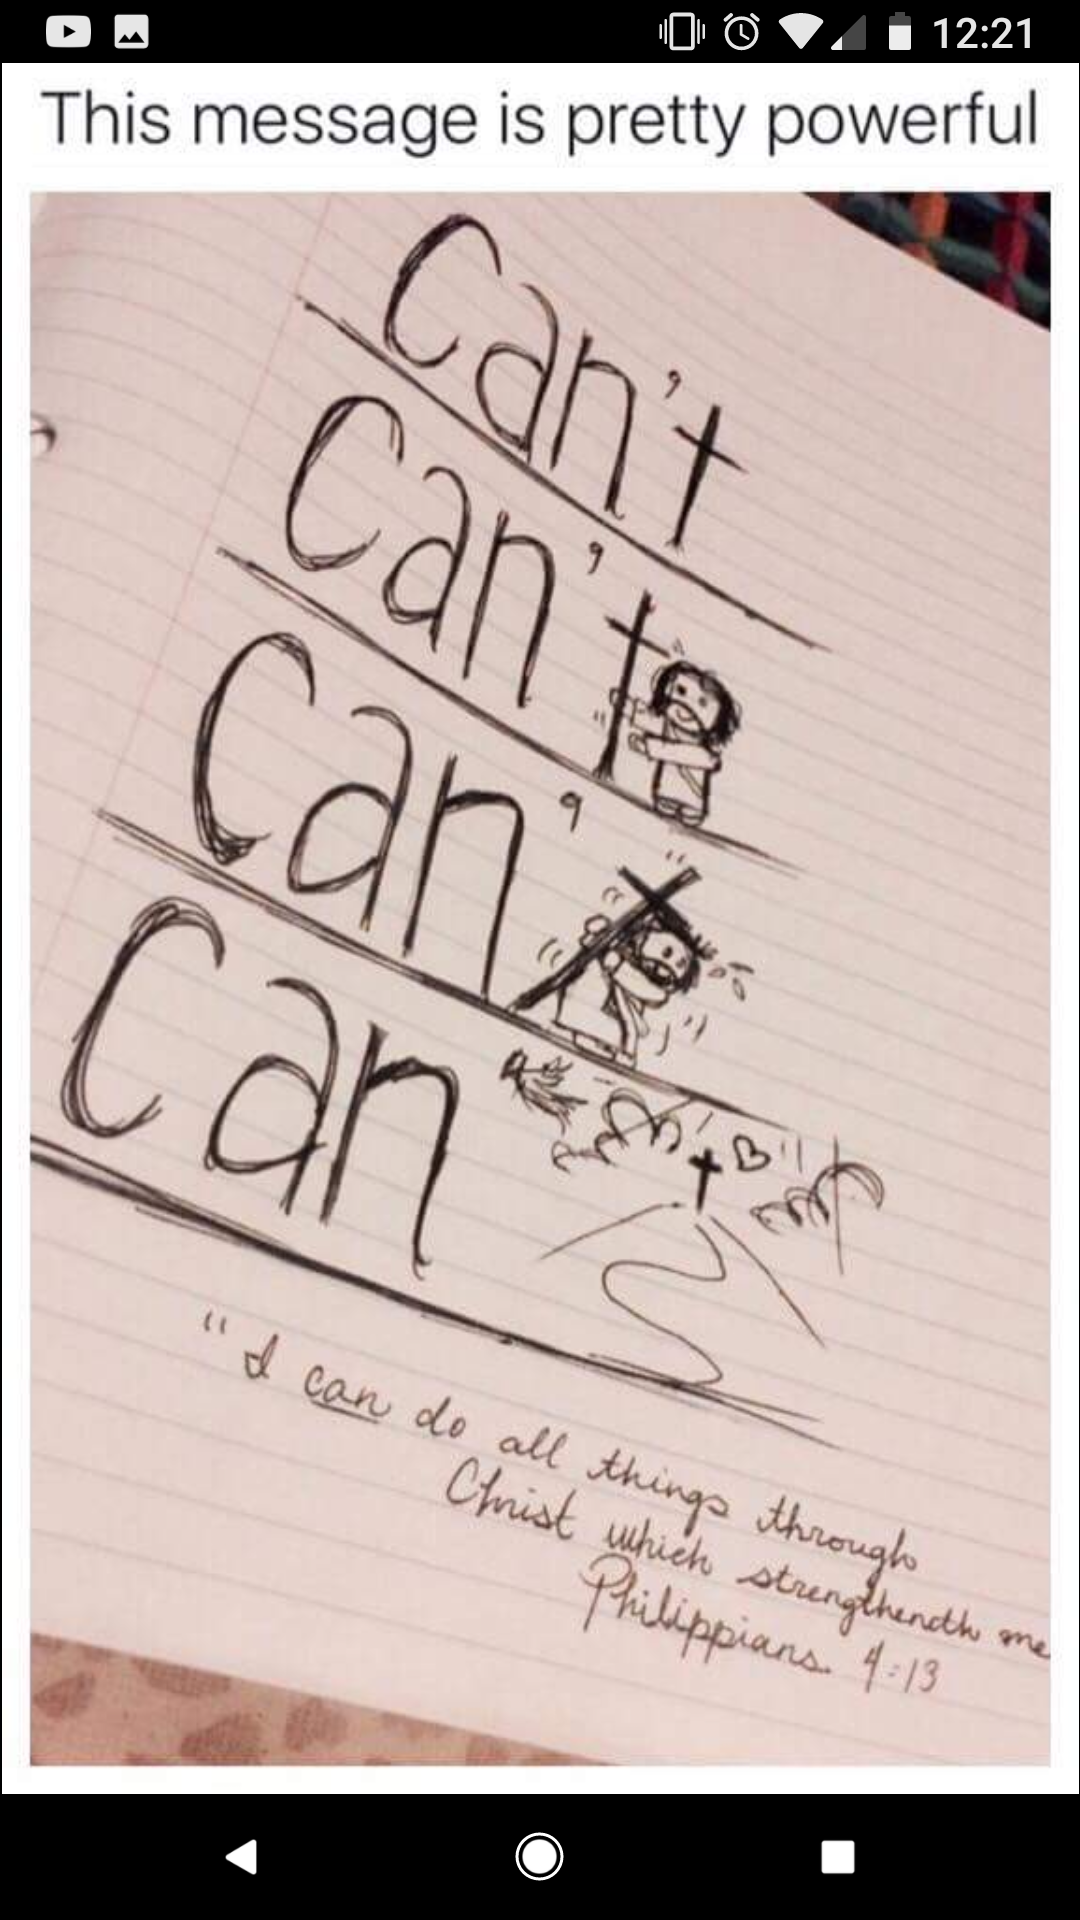 12:21
This message is pretty powerful
Can't
Can't
Can'
Can
"I can do all things through
Christ which strengthendth me
Philippians 4:13